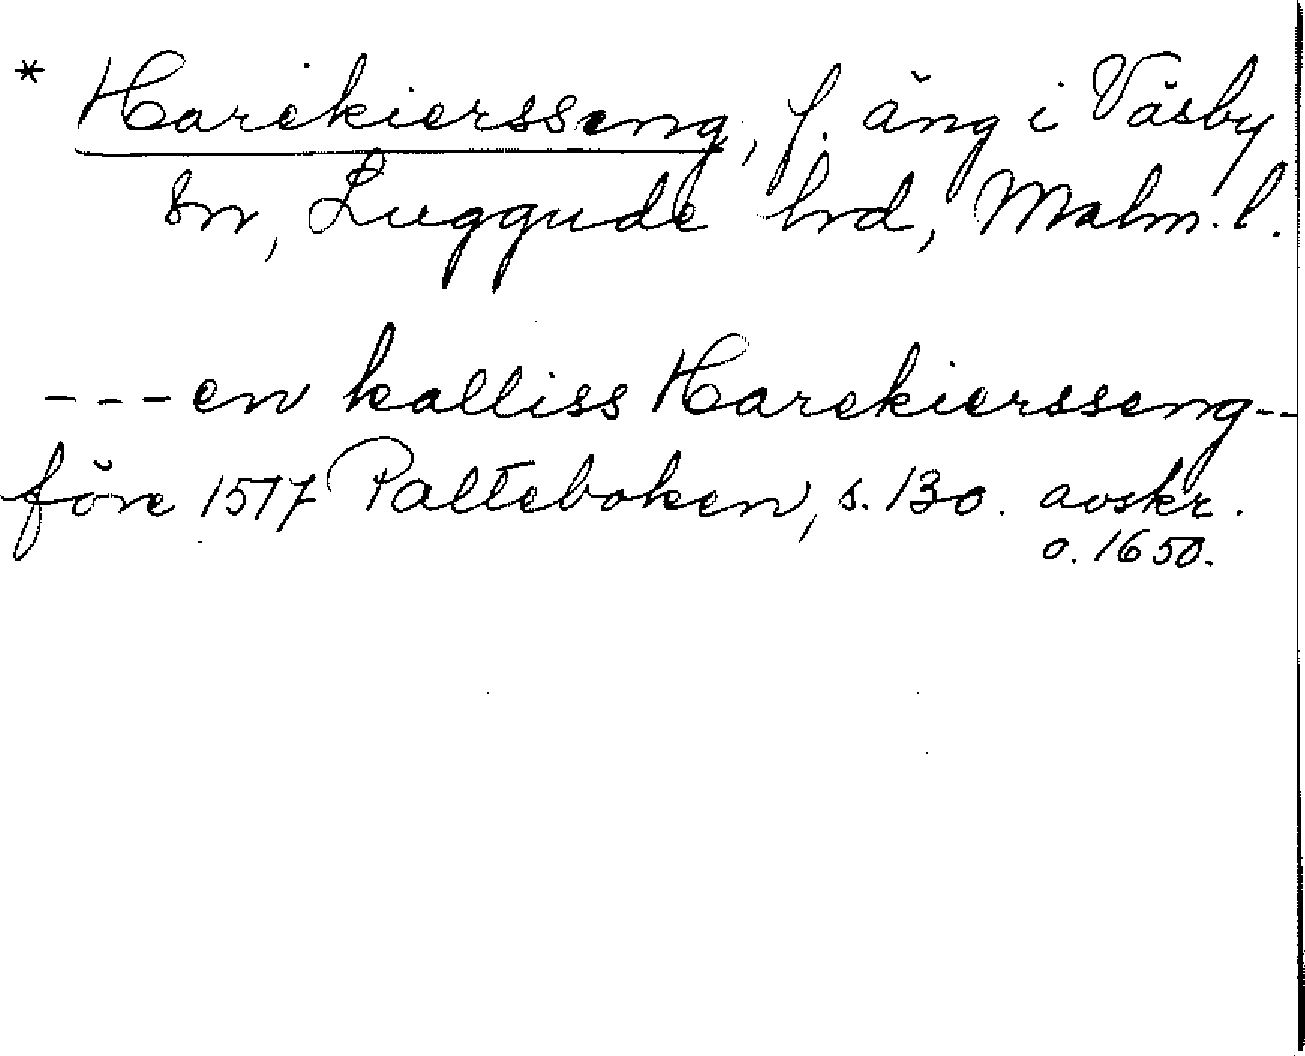 * Harekiersseng, f. äng i Väsby
sn, Luggude hrd, Malm. l.
---en kalliss Harekiersseng--
före 1517 Palteboken, s. 130. avskr.
o. 1650.